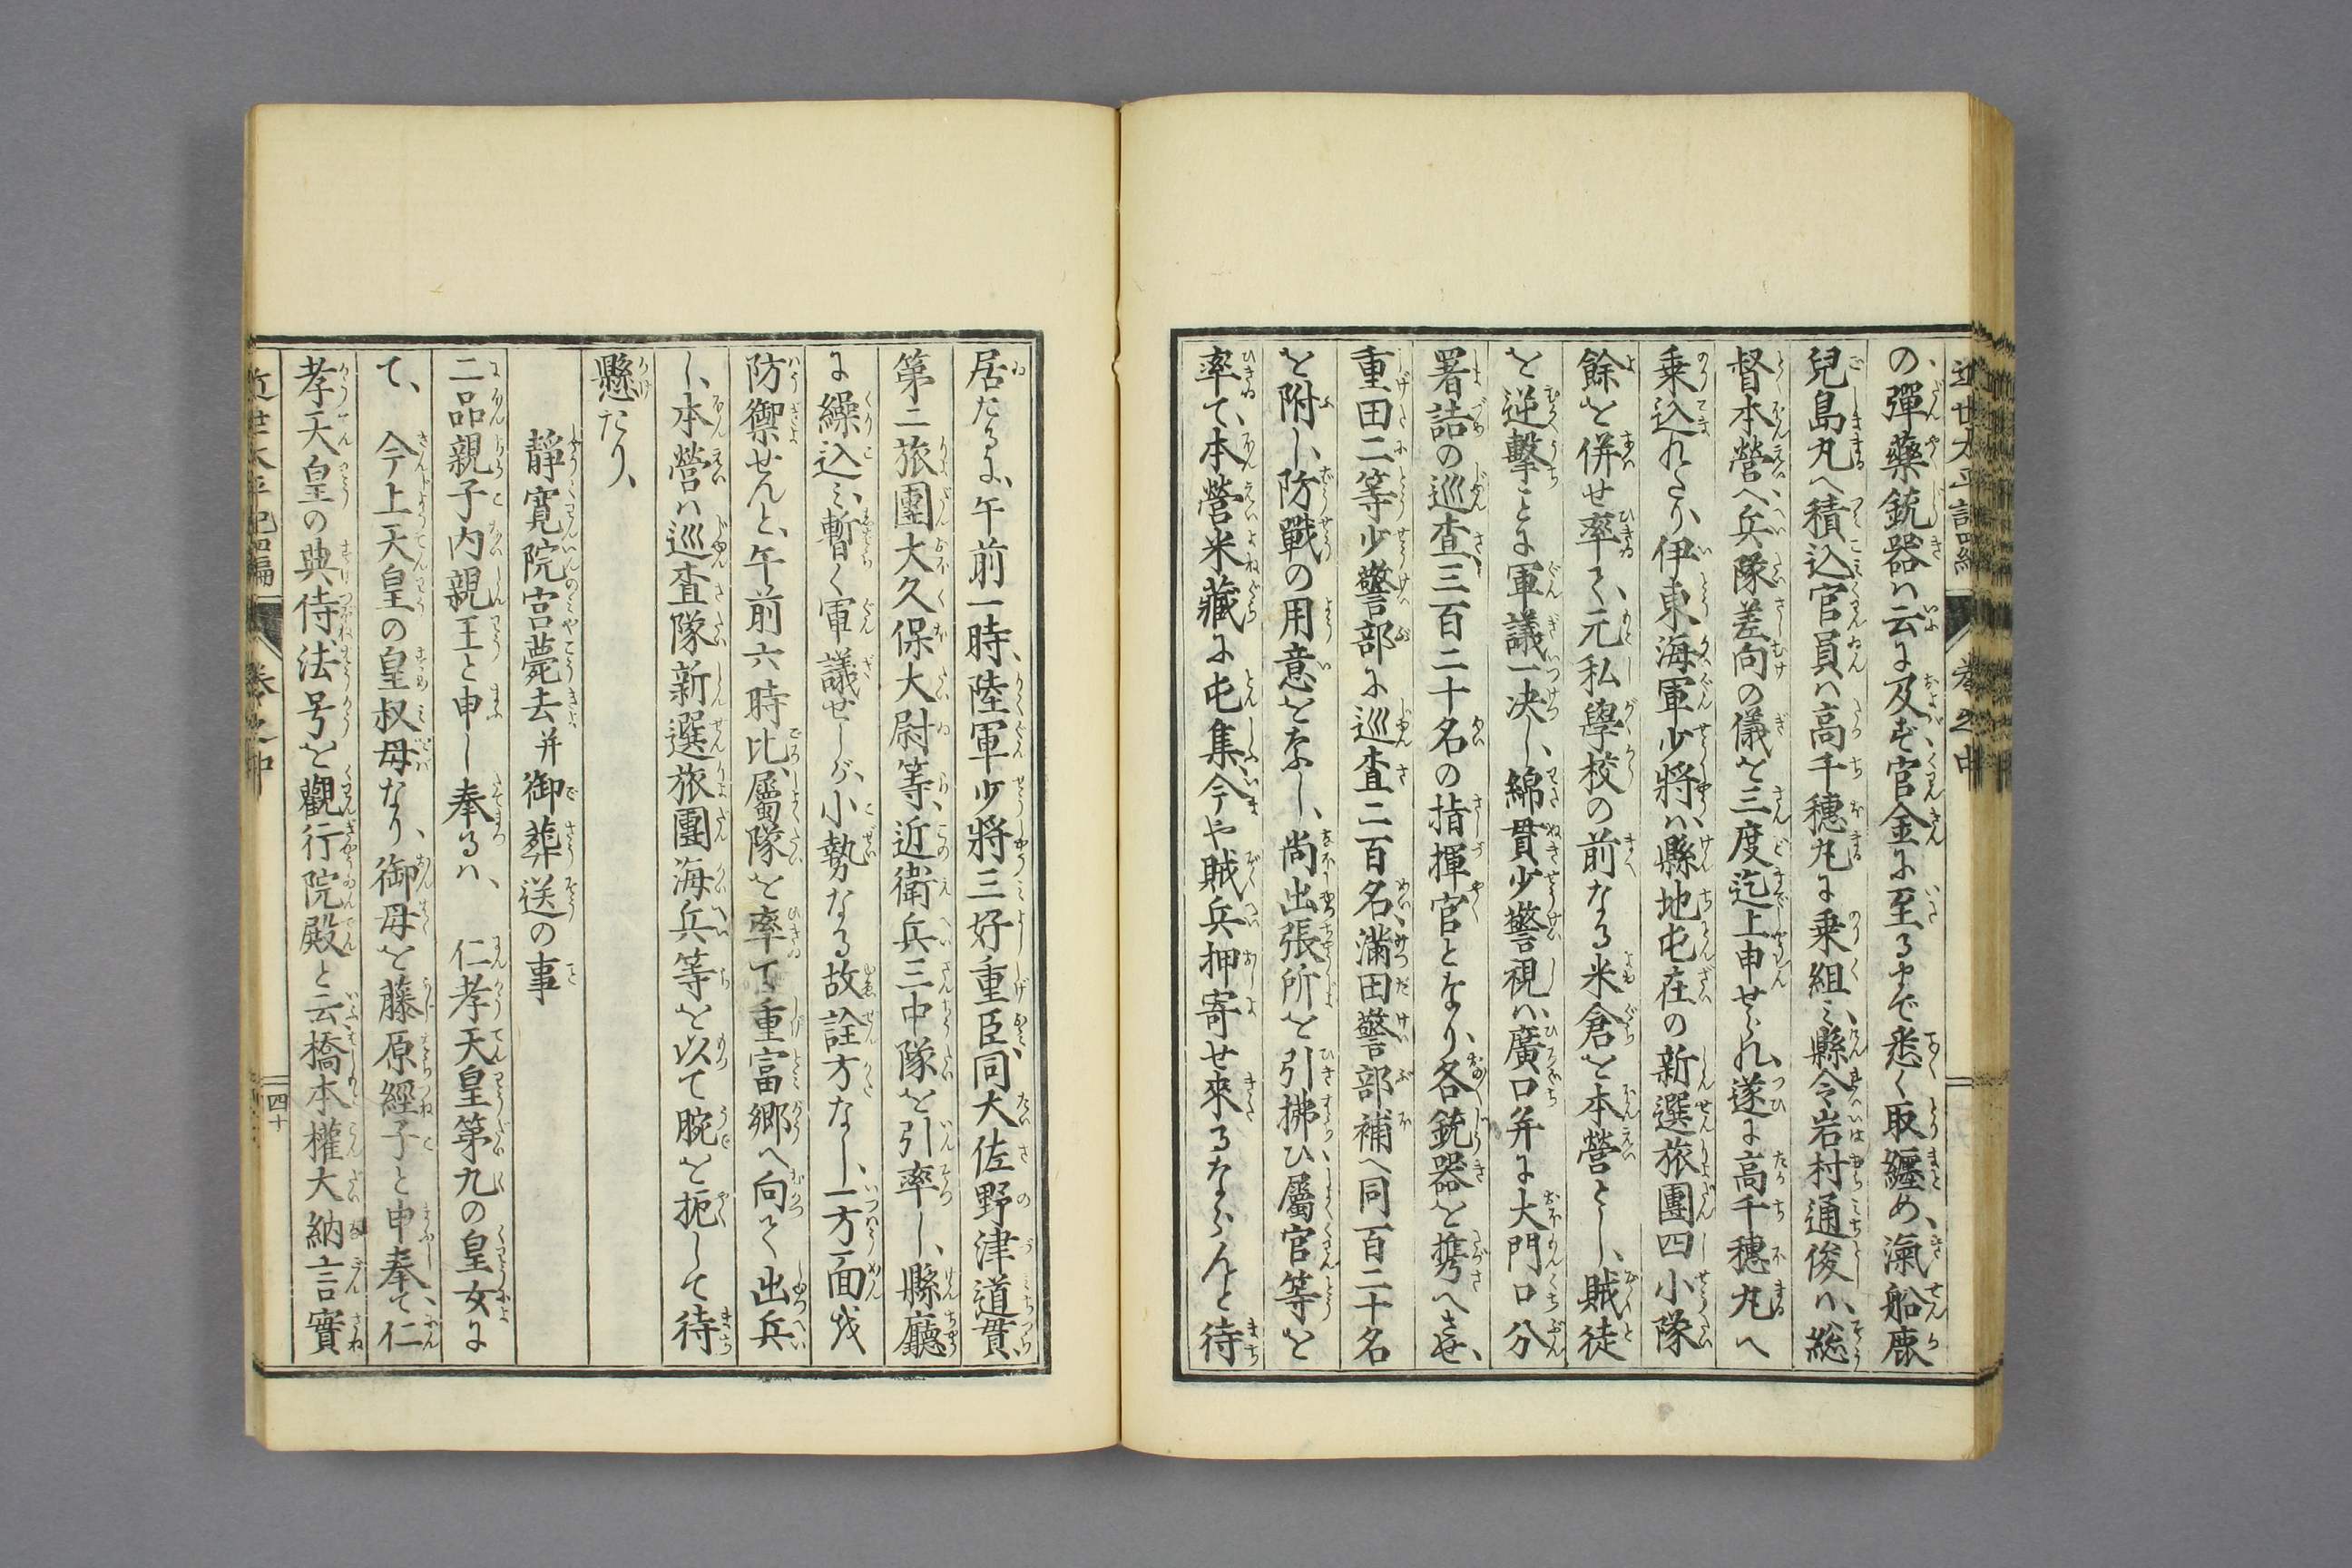 の彈藥銃器ハ云に及ばず官金に至るまで悉く取纏め、滊船鹿
兒島丸へ積込官員ハ高千穗丸に乗組ミ、縣令岩村通俊ハ、総
督本營へ、兵隊差向の儀を三度迄上申せられ、遂に高千穗丸へ
乗込れたり、伊東海軍少將ハ、縣地屯在の新選旅團四小隊
餘を併せ率て、元私學校の前なる米倉を本營とし、賊徒
を逆擊ことに軍議一决し、綿貫少警視ハ、廣口并に大門口分
署詰の巡査、三百二十名の指揮官となり、各銃器を携へさせ、
重田二等少警部に巡査二百名、滿田警部補へ同百二十名
を附し、防戰の用意をなし、尚出張所を引拂ひ、屬官等を
率て、本營米藏に屯集今や賊兵押寄せ來るならんと待
居たるに、午前一時、陸軍少將三好重臣、同大佐野津道貫、
第二旅團大久保大尉等、近衛兵三中隊を引率し、縣廳
に繰込ミ、暫く軍議せしが、小勢なる故詮方なし、一方面丈
防禦せんと、午前六時比、屬隊を率て重富郷へ向て出兵
し、本營ハ巡査隊新選旅團海兵等を以て腕を扼して待
懸たり、
靜寛院宮薨去并御葬送の事
二品親子内親王と申し奉るハ、仁孝天皇第九の皇女に
て、今上天皇の皇叔母なり、御母を藤原經子と申奉て、仁
孝天皇の典侍法号を觀行院殿と云、橋本權大納言實
近世太平記四編
卷之中
四十